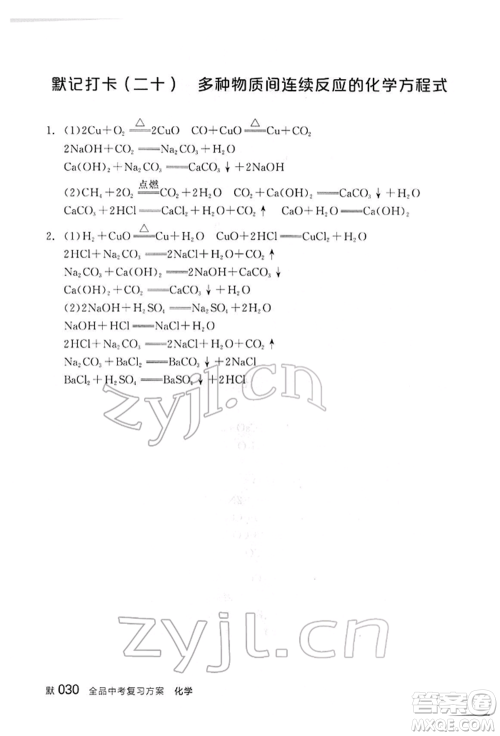 默记打卡(二十) 多种物质间连续反应的化学方程式
1. (1)2Cu+O₂ ≜ 2CuO CO+CuO ≜ Cu+CO₂
2NaOH+CO₂══Na₂CO₃+H₂O
Ca(OH)₂+CO₂══CaCO₃↓+H₂O
(2)CH₄+2O₂ 点燃══ CO₂+2H₂O CaO+H₂O══Ca(OH)₂
CaCO₃+2HCl══CaCl₂+H₂O+CO₂↑
2. (1)H₂+CuO ≜ Cu+H₂O CuO+2HCl══CuCl₂+H₂O
2HCl+Na₂CO₃══2NaCl+H₂O+CO₂↑
Na₂CO₃+Ca(OH)₂══2NaOH+CaCO₃↓
Ca(OH)₂+CO₂══CaCO₃↓+H₂O
(2)2NaOH+H₂SO₄══Na₂SO₄+2H₂O
NaOH+HCl══NaCl+H₂O
2HCl+Na₂CO₃══2NaCl+H₂O+CO₂↑
Na₂CO₃+BaCl₂══BaCO₃↓+2NaCl
BaCl₂+H₂SO₄══BaSO₄↓+2HCl
zyjl.cn
zyjl.cn
默 030 全品中考复习方案 化学